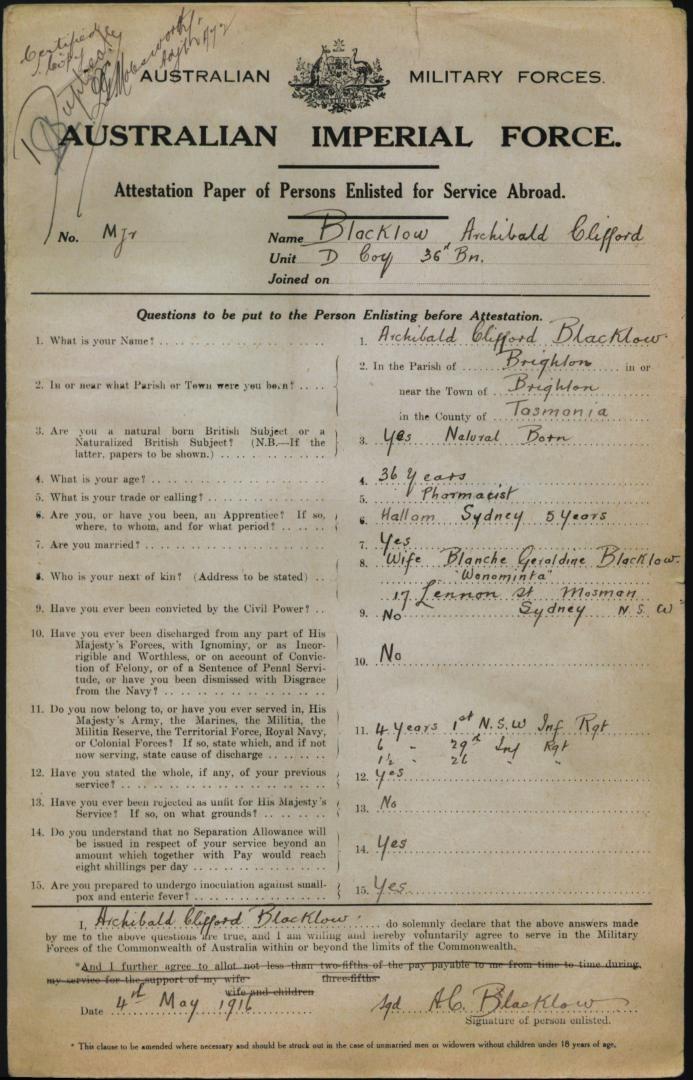 Certified
copy
AUSTRALIAN MILITARY FORCES.
AUSTRALIAN IMPERIAL FORCE.
Attestation Paper of Persons Enlisted for Service Abroad.
No. Mjr Name Blacklow Archibald Clifford
Unit D Coy 36th Bn.
Joined on
Questions to be put to the Person Enlisting before Attestation.
1. What is your Name? 1. Archibald Clifford Blacklow
2. In or near what Parish or Town were you born? 2. In the Parish of Brighton in or
near the Town of Brighton
in the County of Tasmania
3. Are you a natural born British Subject or a
Naturalized British Subject? (N.B.—If the
latter, papers to be shown.) 3. Yes Natural Born
4. What is your age? 4. 36 Years
5. What is your trade or calling? 5. Pharmacist
6. Are you, or have you been, an Apprentice? If so,
where, to whom, and for what period? 6. Hallam Sydney 5 Years
7. Are you married? 7. Yes
8. Who is your next of kin? (Address to be stated) 8. Wife Blanche Geraldine Blacklow.
"Wonominta"
17 Lennon St Mosman
Sydney N.S.W
9. Have you ever been convicted by the Civil Power? 9. No
10. Have you ever been discharged from any part of His
Majesty's Forces, with Ignominy, or as Incor-
rigible and Worthless, or on account of Convic-
tion of Felony, or of a Sentence of Penal Servi-
tude, or have you been dismissed with Disgrace
from the Navy? 10. No
11. Do you now belong to, or have you ever served in, His
Majesty's Army, the Marines, the Militia, the
Militia Reserve, the Territorial Force, Royal Navy,
or Colonial Forces? If so, state which, and if not
now serving, state cause of discharge 11. 4 Years 1st N.S.W Inf Rgt
6 " 29th Inf Rgt
1½ " 26 " "
12. Have you stated the whole, if any, of your previous
service? 12. Yes
13. Have you ever been rejected as unfit for His Majesty's
Service? If so, on what grounds? 13. No
14. Do you understand that no Separation Allowance will
be issued in respect of your service beyond an
amount which together with Pay would reach
eight shillings per day 14. Yes
15. Are you prepared to undergo inoculation against small-
pox and enteric fever? 15. Yes
I, Archibald Clifford Blacklow do solemnly declare that the above answers made
by me to the above questions are true, and I am willing and hereby voluntarily agree to serve in the Military
Forces of the Commonwealth of Australia within or beyond the limits of the Commonwealth.
*And I further agree to allot not less than two-fifths of the pay payable to me from time to time during
three-fifths
my service for the support of my wife
wife and children
Date 4th May 1916 Sgd A.C. Blacklow
Signature of person enlisted.
* This clause to be amended where necessary and should be struck out in the case of unmarried men or widowers without children under 18 years of age.